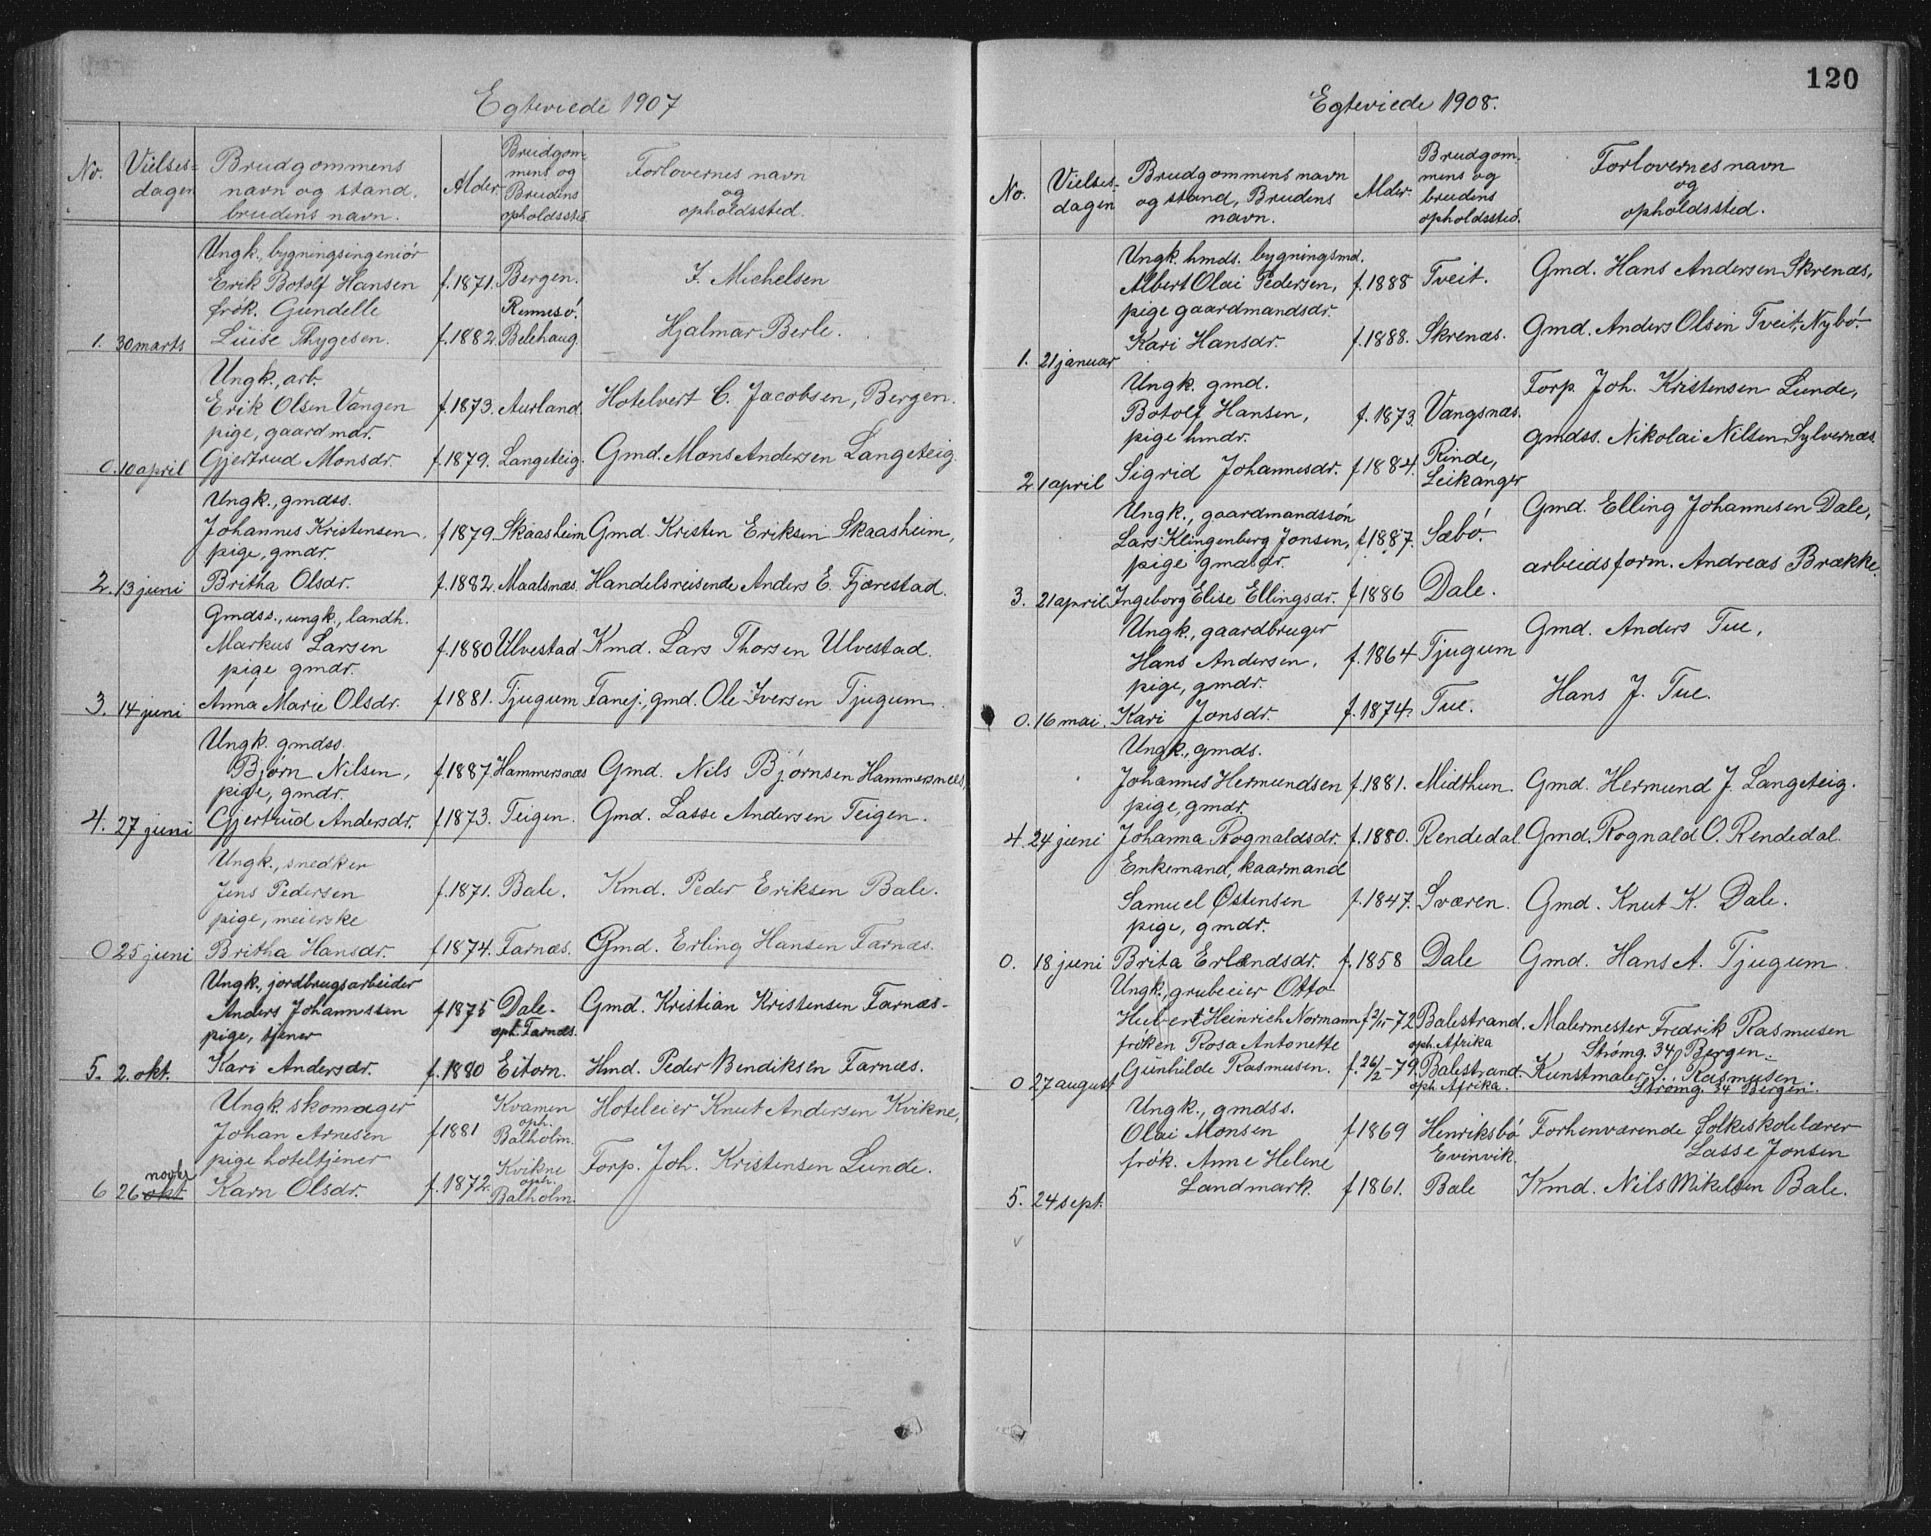 Egteviede 1907
No.
Vielses-
dagen
Brudgommens
navn og stand,
brudens navn.
Alder
Brudgom-
mens og
Brudens
opholdssted
Forlovernes navn
og
opholdssted.
Ungk., bygningsingeniör
Erik Botolf Hansen f. 1871. Bergen. J. Michelsen
frök. Gundelle Rennesö.
1. 30 marts Luise Thygesen. f. 1882 Belehaug. Hjalmar Berle.
Ungk., arb.
Erik Olsen Vangen f. 1873. Aurland. Hotelvert C. Jacobsen, Bergen.
pige, gaardmdr.
0. 10 april Gjertrud Monsdr. f. 1879. Langeteig. Gmd. Mons Andersen Langeteig.
Ungk., gmdss.
Johannes Kristensen f 1879. Skaasheim Gmd. Kristen Eriksen Skaasheim,
pige, gmdr.
2. 13 juni Britha Olsdr. f. 1882. Maalsnæs. Handelsreisende Anders E. Fjærestad.
Gmdss., ungk., landh.
Markus Larsen f. 1880 Ulvestad Kmd. Lars Thorsen Ulvestad.
pige gmdr.
3. 14 juni Anna Marie Olsdr. f 1881. Tjugum Fanej., gmd. Ole Iversen Tjugum.
Ungk. gmdss.
Bjørn Nilsen, f. 1887. Hammersnæs Gmd. Nils Bjørnsen Hammersnæs,
pige, gmdr.
4. 27 juni Gjertrud Andersdr. f 1873. Teigen. Gmd. Lasse Andersen Teigen.
Ungk., snedker
Jens Pedersen f. 1871. Bale. Kmd. Peder Eriksen Bale.
pige, meierske
0 25 juni Britha Hansdr. f 1874. Farnæs. Gmd. Erling Hansen Farnæs.
Ungk., jordbrugsarbeider
Anders Johannessen f 1875 Dale- Gmd. Kristian Kristensen Farnæs-
pige, tjener oph. Farnæs.
5. 2. okt. Kari Andersdr. f. 1880 Eitorn. Hmd. Peder Bendiksen Farnæs.
Ungk. skomager Kvamen Hoteleier Knut Andersen Kvikne,
Johan Arnesen f 1881 oph. Balholm.
pige hoteltjener Kvikne Forp. Joh. Kristensen Lunde.
6 26 okt. novbr Karn Olsdr. f. 1872. oph. Balholm.
120
Egteviede 1908.
No.
Vielses-
dagen
Brudgommens navn
og stand, Brudens
navn.
Alder.
Brudgom-
mens og
brudens
opholdssted.
Forlovernes navn
og
opholdssted.
Ungk. hmds. bygningsmd.
Albert Olai Pedersen, f. 1888 Tveit. Gmd. Hans Andersen Skrenæs,
pige gaardmandsdr.
1. 21 januar Kari Hansdr. f. 1888. Skrenæs. Gmd. Anders Olsen Tveit, Nybö.
Ungk. gmd. Forp. Joh. Kristensen Lunde,
Botolf Hansen, f. 1873. Vangsnæs.
pige hmdr. gmdss. Nikolai Nilsen Sylvernæs.
2 1 april Sigrid Johannesdr. f 1884. Rinde, Leikanger
Ungk., gaardmandssön Gmd. Elling Johannesen Dale,
Lars Klingenberg Jonsen, f 1887. Sæbö.
pige gmddr. arbeidsform. Andreas Brække.
3. 21 april Ingeborg Elise Ellingsdr. f 1886 Dale.
Ungk., gaardbruger Gmd. Anders Tue,
Hans Andersen, f. 1864 Tjugum
pige, gmdr. Hans J. Tue.
0. 16 mai. Kari Jonsdr. f. 1874. Tue.
Ungk., gmds.
Johannes Hermundsen f. 1881. Midthun. Gmd. Hermund J. Langeteig.
pige, gmdr.
4. 24 juni Johanna Rognaldsdr. f. 1880. Rendedal Gmd. Rognald O. Rendedal.
Enkemand, kaarmand
Samuel Østensen f. 1847. Sværen. Gmd. Knut K. Dale.
pige, gmdr.
0. 18 juni Brita Erlendsdr. f. 1858 Dale Gmd. Hans A. Tjugum.
Ungk., grubeeier Otto
Hubert Heinrich Normann f 2/11-72 Balestrand. Malermester Fredrik Rasmusen
fröken Rosa Antonette oph. Afrika Strömg. 34 Bergen.
0 27 august Gunhilde Rasmusen. f. 26/2-79. Balestrand. Kunstmaler, J. Rasmusen.
oph. Afrika. Strömg. 34 Bergen.
Ungk., gmdss.
Olai Monsen f 1869 Henriksbö Forhenværende folkeskolelærer
frök. Anne Helene Evinvik. Lasse Jonsen
5. 24 sept. Landmark. f 1861. Bale Kmd. Nils Mikelsen Bale.